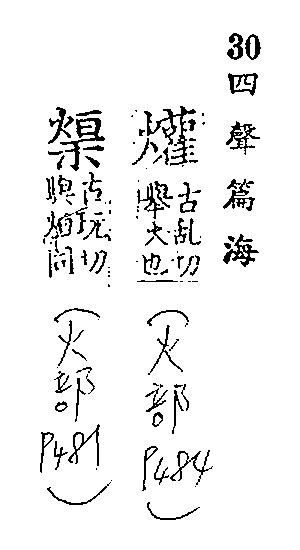 30 四聲篇海
爟
古乱切
舉火也
(火部
P484)
古玩切
與同
(火部
P481)